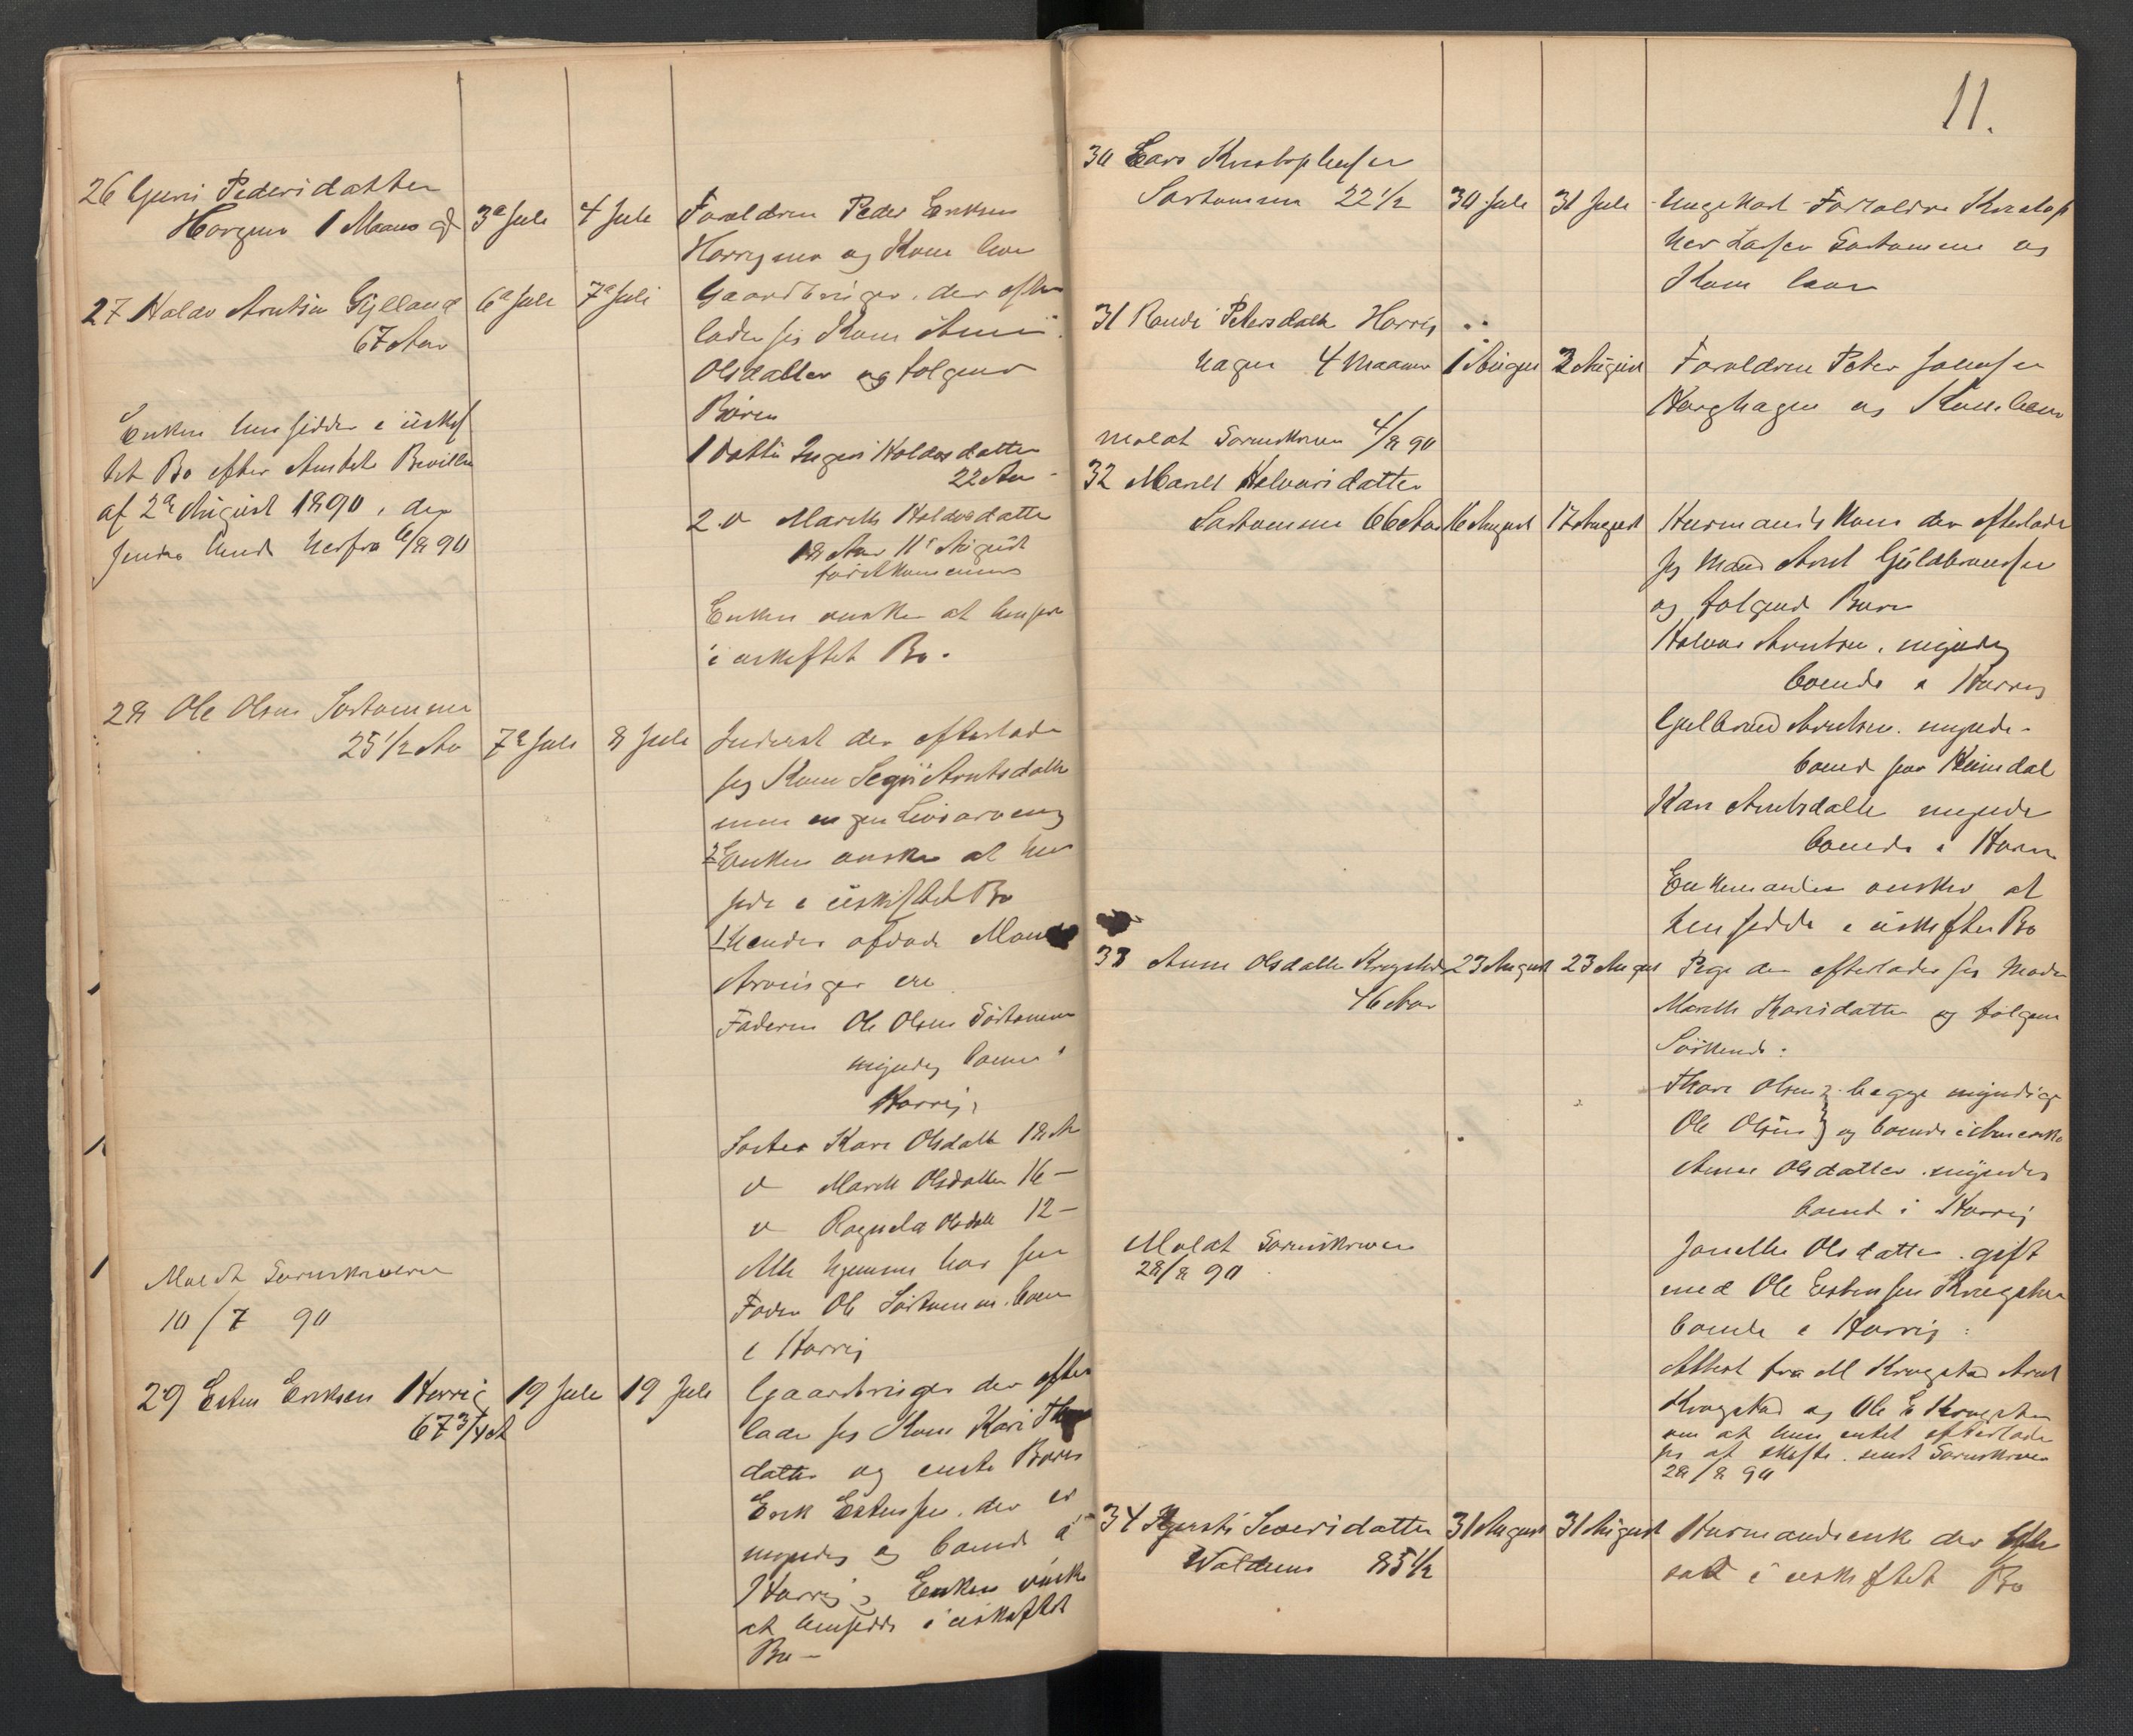 26 Guri Pedersdatter
Horgmo 1 Maan
3e Juli
4 Juli
Foraldren Peder Eriksen
Horrigmo og Kone
27 Haldo Arntsen Gylland
67 Aar
6e Juli
7e Juli
Gaardbruger, der efter
lader sig Kone
Olsdatter og følgende
Børn
1 Datter Inger Haldosdatter
22 Aar
2 Marith Haldosdatter
18 Aar 11e August
førstkommende
Enken ønsker at hensidde
i uskiftet Bo.
Enken hensidder i uskif
tet Bo efter Amtets Bevilling
af 2e August 1890, der
sendes herfra 6/8 90
28 Ole Olsen Sørtømme
25 1/2 Aar
7e Juli
8 Juli
Inderst der efterlader
sig Kone Arntsdatter
men ingen Livsarving
2 Enken ønsker at hen
sidde i uskiftet Bo
1 hendes afdøde Mands
Arvinger ere
Faderen Ole Olsen Sørtømme
myndig boende i
Horrig
Søster Kari Olsdatter 18 A
" Marit Olsdatter 16 –
" Olsdatter 12 –
Alle hjemme hos sin
Fader Ole Sørtømme boende
i Horrig
Meldt Sorenskriveren
10/7 90
29 Esten Eriksen Horrig
67 3/4 A
19 Juli
19 Juli
Gaardbruger der efter
lader sig Kone Kari
datter og eneste Barn
Erik Estensen, der er
myndig og boende i
Horrig, Enken ønsker
at hensidde i uskiftet
Bo –
11.
30 Lars Kristophersen
Sørtømme 22 1/2
30 Juli
31 Juli
Ungekarl Forældre Kristop
her Larsen Sørtømme og
Kone
31 Randi Petersdatter Horrig
hagen 4 Maaner
1 August
2 August
Foraldrene Peter Johnsen
Horghagen og Kone
Meldt Sorenskriveren 4/8 90
32 Marit Halvorsdatter
Sørtømme 66 Aar
16 August
17 August
Husmands Kone der efterlader
sig Mand Arnt Guldbrandsen
og følgende Børn
Halvor Arntsen, myndig
boende i Horrig
Gulbrand Arntsen. myndig
boende paa Heimdal
Kari Arntsdatter myndig
boende i Horrig
Enkemanden ønsker at
hensidde i uskiftet Bo
33 Anne Olsdatter Krogstad
46 Aar
23 August
23 August
Pige der efterlader sig Moder
Marith Hansdatter og følgende
Søskende:
Thore Olsen } begge myndige
Ole Olsen } og boende i Amerika
Anne Olsdatter myndig
boende i Horrig
Olsdatter. gift
med Ole Estensen Krogstad
boende i Horrig:
Attest fra M Krogstad Arnt
Krogstad og Ole E Krogstad
om at hun intet efterlader
sig at skifte. sendt Sorenskriveren
28/8 90
Meldt Sorenskriveren
28/8 90
34 Kjersti Seversdatter
85 1/2
31 August
31 August
Husmandsenke der
sad i uskiftet Bo